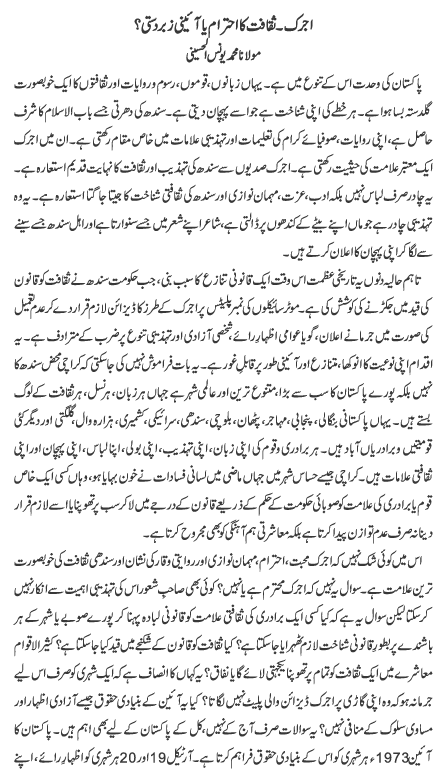 اجرک۔ ثقافت کا احترام یا آئینی زبردستی؟
مولانا محمد یونس الحسینی
پاکستان کی وحدت اس کے تنوع میں ہے۔ یہاں زبانوں، قوموں، رسوم و روایات اور ثقافتوں کا ایک خوبصورت
گلدستہ بسا ہوا ہے۔ ہر خطے کی اپنی شناخت ہے جو اسے پہچان دیتی ہے۔ سندھ کی دھرتی جسے باب الاسلام کا شرف
حاصل ہے، اپنی روایات، صوفیائے کرام کی تعلیمات اور تہذیبی علامات میں خاص مقام رکھتی ہے۔ ان میں اجرک
ایک معتبر علامت کی حیثیت رکھتی ہے۔ اجرک صدیوں سے سندھ کی تہذیب اور ثقافت کا نہایت قدیم استعارہ ہے۔
یہ چادر صرف لباس نہیں بلکہ ادب، عزت، مہمان نوازی اور سندھ کی ثقافتی شناخت کا جیتا جاگتا استعارہ ہے۔ یہ وہ
تہذیبی چادر ہے جو ماں اپنے بیٹے کے کندھوں پر ڈالتی ہے، شاعر اپنے شعر میں جسے سنوارتا ہے اور اہل سندھ جسے سینے
سے لگا کر اپنی پہچان کا اعلان کرتے ہیں۔
تاہم حالیہ دنوں یہ تاریخی عظمت اس وقت ایک قانونی تنازع کا سبب بنی، جب حکومت سندھ نے ثقافت کو قانون
کی قید میں جکڑنے کی کوشش کی ہے۔ موٹر سائیکلوں کی نمبر پلیٹس پر اجرک کے طرز کا ڈیزائن لازم قرار دے کر عدم تعمیل
کی صورت میں جرمانے کا اعلان، گویا عوامی اظہار رائے، شخصی آزادی اور تہذیبی تنوع پر ضرب کے مترادف ہے۔ یہ
اقدام اپنی نوعیت کا انوکھا، متنازع اور آئینی طور پر قابل غور ہے۔ یہ بات فراموش نہیں کی جاسکتی کہ کراچی محض سندھ کا
نہیں بلکہ پورے پاکستان کا سب سے بڑا، متنوع ترین اور عالمی شہر ہے جہاں ہر زبان، ہر نسل، ہر ثقافت کے لوگ
بستے ہیں۔ یہاں پاکستانی بنگالی، پنجابی، مہاجر، پٹھان، بلوچی، سندھی، سرائیکی، کشمیری، ہزارہ وال، گلگتی اور دیگر کئی
قومیتیں و برادریاں آباد ہیں۔ ہر برادری و قوم کی اپنی زبان، اپنی تہذیب، اپنی بولی، اپنا لباس، اپنی پہچان اور اپنی
ثقافتی علامات ہیں۔ کراچی جیسے حساس شہر میں جہاں ماضی میں لسانی فسادات نے خون بہایا ہو، وہاں کسی ایک خاص
قوم یا برادری کی علامت کو صوبائی حکومت کے حکم کے ذریعے قانون کے درجے میں لا کر سب پر تھوپنا یا اسے لازم قرار
دینا نہ صرف عدم توازن پیدا کرتا ہے بلکہ معاشرتی ہم آہنگی کو بھی مجروح کرتا ہے۔
اس میں کوئی شک نہیں کہ اجرک محبت، احترام، مہمان نوازی اور روایتی وقار کی نشان اور سندھی ثقافت کی خوبصورت
ترین علامت ہے۔ سوال یہ نہیں کہ اجرک محترم ہے یا نہیں؟ کوئی بھی صاحب شعور اس کی تہذیبی اہمیت سے انکار نہیں
کر سکتا لیکن سوال یہ ہے کہ کیا کسی ایک برادری کی ثقافتی علامت کو قانونی لبادہ پہنا کر پورے صوبے یا شہر کے ہر
باشندے پر بطور قانونی شناخت لازم ٹھہرایا جاسکتا ہے؟ کیا ثقافت کو قانون کے شکنجے میں قید کیا جاسکتا ہے؟ کثیر الاقوام
معاشرے میں ایک ثقافت کو تمام پر تھوپنا یکجہتی لائے گا یا نفاق؟ یہ کہاں کا انصاف ہے کہ ایک شہری کو صرف اس لیے
جرمانہ ہو کہ وہ اپنی گاڑی پر اجرک ڈیزائن والی پلیٹ نہیں لگاتا؟ کیا یہ آئین کے بنیادی حقوق جیسے آزادی اظہار اور
مساوی سلوک کے منافی نہیں؟ یہ سوالات صرف آج کے نہیں، کل کے پاکستان کے لیے بھی اہم ہیں۔ پاکستان کا
آئین 1973ء ہر شہری کو اس کے بنیادی حقوق فراہم کرتا ہے۔ آرٹیکل 19 اور 20 ہر شہری کو اظہار رائے، اپنے